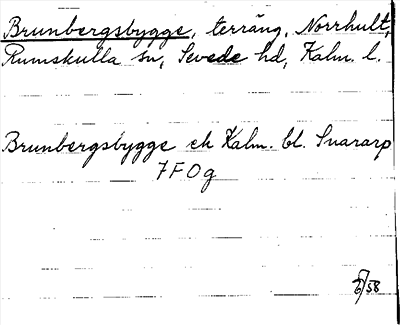 Brunbergsbygge, terräng, Norrhult,
Rumskulla sn, Sevede hd, Kalm. l.
Brunbergsbygge ek Kalm. bl. Snararp
7F0g
58